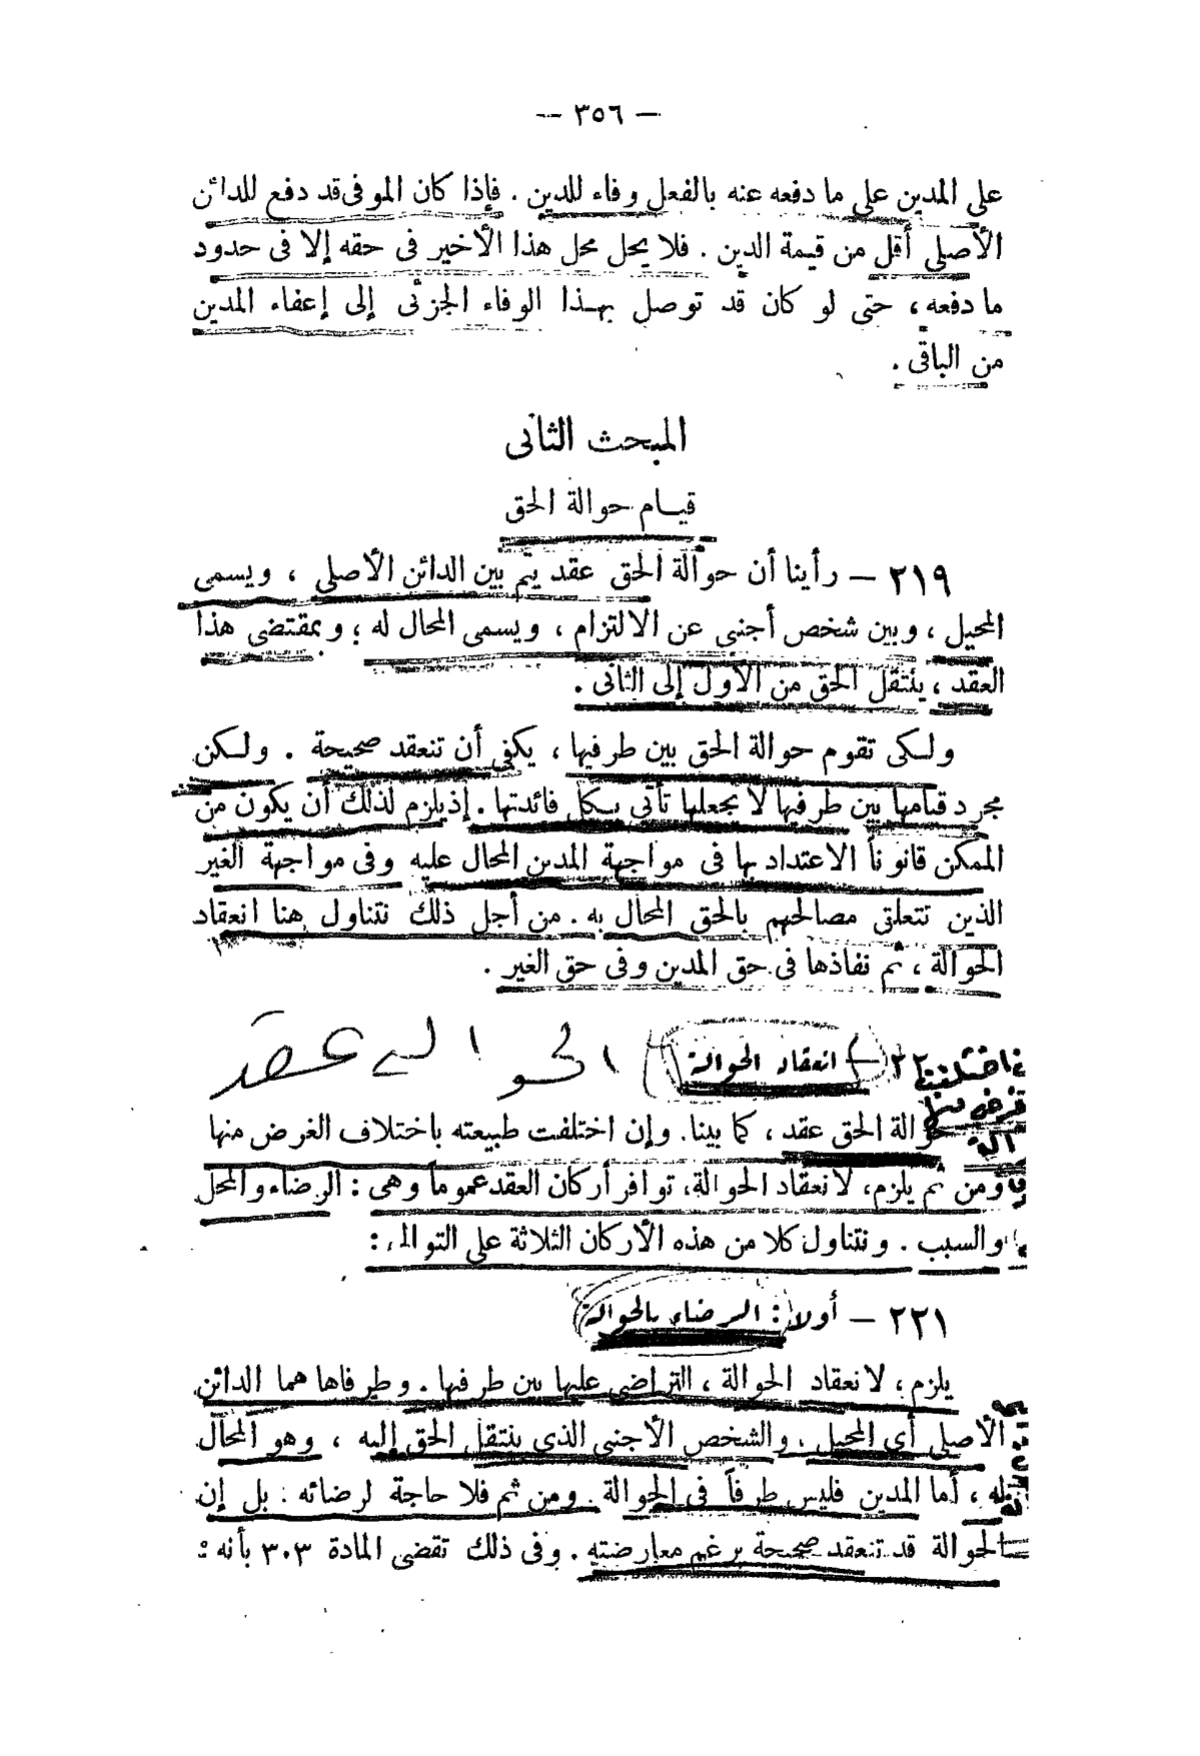 — ٣٥٦ —
على المدين على ما دفعه عنه بالفعل وفاء للدين . فإذا كان الموفى قد دفع للدائن
الأصلى أقل من قيمة الدين . فلا يحل محل هذا الأخير فى حقه إلا فى حدود
ما دفعه ، حتى لو كان قد توصل بهذا الوفاء الجزئى إلى إعفاء المدين
من الباقى .
المبحث الثانى
قيام حوالة الحق
٢١٩ — رأينا أن حوالة الحق عقد يتم بين الدائن الأصلى ، ويسمى
المحيل ، وبين شخص أجنبى عن الالتزام ، ويسمى المحال له ؛ وبمقتضى هذا
العقد ، ينتقل الحق من الأول إلى الثانى .
ولكى تقوم حوالة الحق بين طرفيها ، يكفى أن تنعقد صحيحة . ولكن
مجرد قيامها بين طرفيها لا يجعلها تأتى بكل فائدتها . إذ يلزم لذلك أن يكون من
الممكن قانوناً الاعتداد بها فى مواجهة المدين المحال عليه وفى مواجهة الغير
الذين تتعلق مصالحهم بالحق المحال به . من أجل ذلك نتناول هنا انعقاد
الحوالة ، ثم نفاذها فى حق المدين وفى حق الغير .
٢٢ — انعقاد الحوالة
عقد
حوالة الحق عقد ، كما بينا . وإن اختلفت طبيعته باختلاف الغرض منها
ومن ثم يلزم ، لانعقاد الحوالة ، توافر أركان العقد عموماً وهى : الرضاء والمحل
والسبب . ونتناول كلا من هذه الأركان الثلاثة على التوالى :
٢٢١ — أولا : الرضاء بالحوالة
يلزم ، لانعقاد الحوالة ، التراضى عليها بين طرفيها . وطرفاها هما الدائن
الأصلى أى المحيل . والشخص الأجنبى الذى ينتقل الحق إليه ، وهو المحال
له ، أما المدين فليس طرفاً فى الحوالة . ومن ثم فلا حاجة لرضائه . بل إن
الحوالة قد تنعقد صحيحة برغم معارضته . وفى ذلك تقضى المادة ٣٠٣ بأنه :